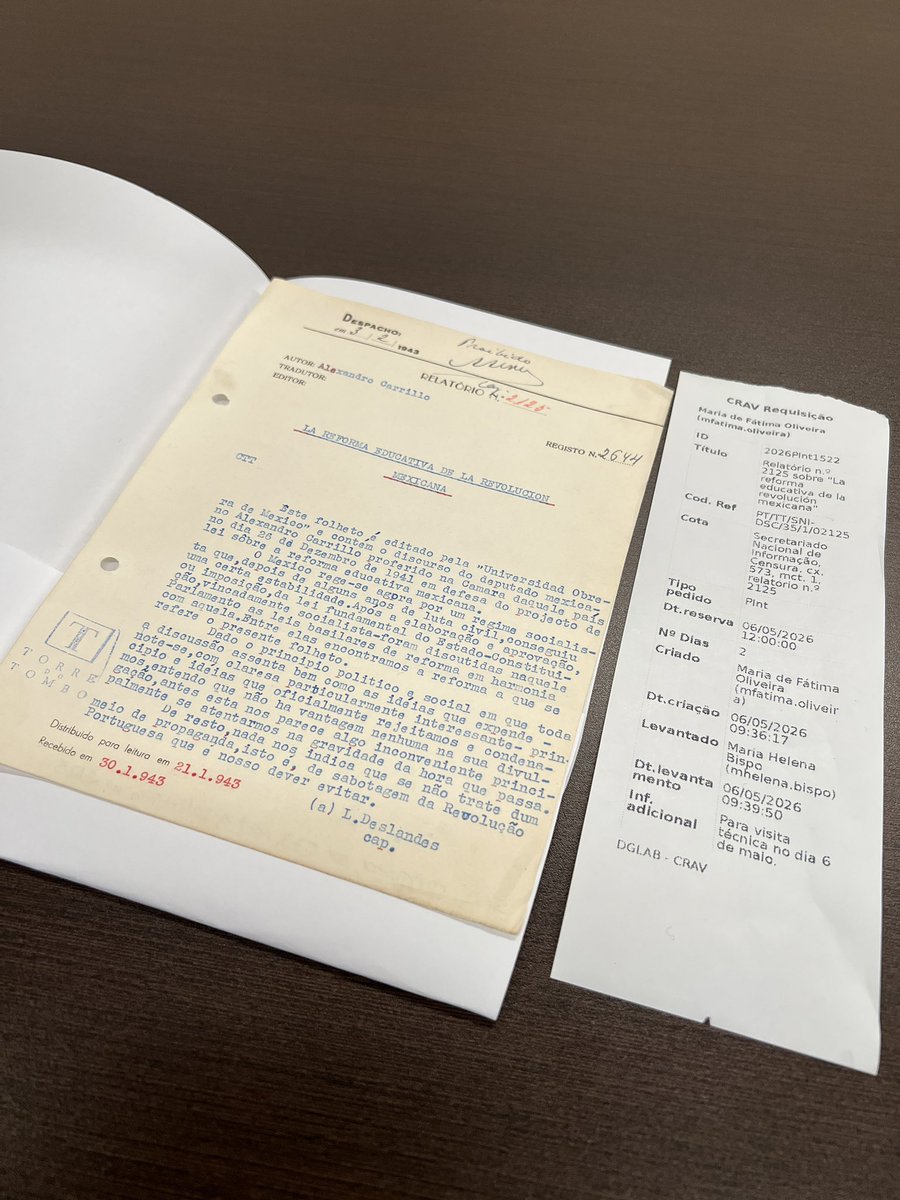 DESPACHO:
em 3/2/1943
Proibido
RELATÓRIO N. 2125
AUTOR: Alexandro Carrillo
TRADUTOR:
EDITOR:
REGISTO N. 2644
LA REFORMA EDUCATIVA DE LA REVOLUCION
MEXICANA
CTT
Este folheto é editado pela "Universidad Obre-
ra de Mexico" e contém o discurso do deputado mexica-
no Alexandro Carrillo proferido na Camara daquele país
no dia 25 de Dezembro de 1941 em defesa do projecto de
lei sôbre a reforma educativa mexicana.
O Mexico rege-se agora por um regime socialis-
ta que, depois de alguns anos de luta civil, conseguiu
uma certa estabilidade. Após a elaboração e aprovação,
ou imposição, da lei fundamental do Estado-Constitui,
ção, vincadamente socialista-foram discutidas naquele
Parlamento as leis basilares de reforma em harmonia
com aquela. Entre elas encontramos a reforma a que se
refere o presente folheto.
Dado o principio politico e social em que toda
a discussão assenta bem como as ideias que expende -
note-se, com claresa particularmente interessante- prin-
cipio e ideias que oficialmente rejeitamos e condena-
mos, entendo que não ha vantagem nenhuma na sua divul-
gação, antes esta nos parece algo inconveniente princi-
palmente se atentarmos na gravidade da hora que passa.
De resto, nada nos indica que se não trate dum
meio de propaganda, isto é, de sabotagem da Revolução
Portuguesa que é nosso dever evitar.
(a) L. Deslandes
cap.
T
TORRE
DO
TOMBO
Distribuido para leitura em 21.1.943
Recebido em 30.1.943
CRAV Requisição
Maria de Fátima Oliveira
(mfatima.oliveira)
ID 2026PInt1522
Título Relatório n.º
2125 sobre "La
reforma
educativa de la
revolución
mexicana"
Cod. Ref PT/TT/SNI-
DSC/35/1/02125
Cota Secretariado
Nacional de
Informação,
Censura, cx.
573, mct. 1,
relatório n.º
2125
Tipo PInt
pedido
Dt.reserva 06/05/2026
12:00:00
Nº Dias 2
Criado Maria de Fátima
Oliveira
(mfatima.oliveir
a)
Dt.criação 06/05/2026
09:36:17
Levantado Maria Helena
Bispo
(mhelena.bispo)
Dt.levanta 06/05/2026
mento 09:39:50
Inf. Para visita
adicional técnica no dia 6
de maio.
DGLAB - CRAV